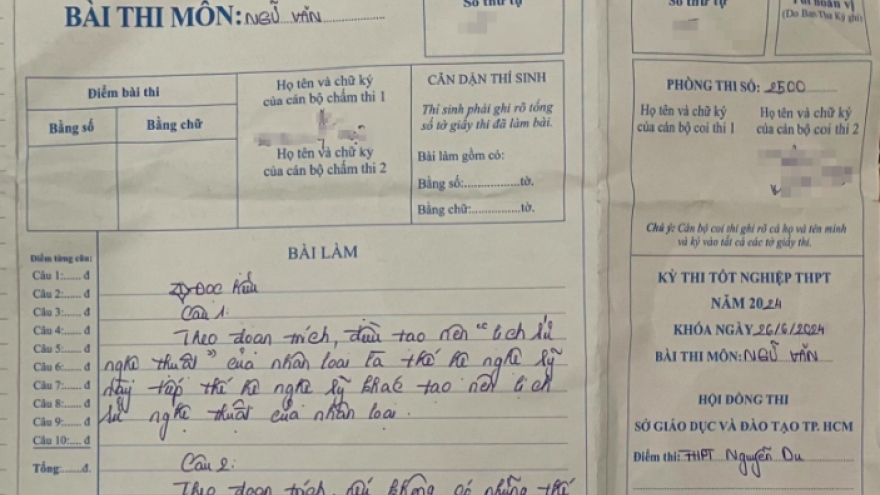 BÀI THI MÔN: NGỮ VĂN
Số thứ tự
Điểm bài thi
Bằng số
Bằng chữ
Họ tên và chữ ký
của cán bộ chấm thi 1
Họ tên và chữ ký
của cán bộ chấm thi 2
CĂN DẶN THÍ SINH
Thí sinh phải ghi rõ tổng
số tờ giấy thi đã làm bài.
Bài làm gồm có:
Bằng số:..................tờ.
Bằng chữ:................tờ.
BÀI LÀM
Điểm từng câu:
Câu 1:...... đ
Câu 2:...... đ
Câu 3:...... đ
Câu 4:...... đ
Câu 5:...... đ
Câu 6:...... đ
Câu 7:...... đ
Câu 8:...... đ
Câu 9:...... đ
Câu 10:.... đ
Tổng:.......đ.
I) Đọc hiểu
Câu 1:
Theo đoạn trích, điều tạo nên "lịch sử
nghệ thuật" của nhân loại là thế hệ nghệ sỹ
này tiếp thế hệ nghệ sỹ khác tạo nên lịch
sử nghệ thuật của nhân loại.
Câu 2:
Theo đoạn trích, nếu không có những thế
Số thứ tự
(Do Ban Thư Ký ghi)
PHÒNG THI SỐ: 2500
Họ tên và chữ ký
của cán bộ coi thi 1
Họ tên và chữ ký
của cán bộ coi thi 2
Chú ý: Cán bộ coi thi ghi rõ cả họ và tên mình
và ký vào tất cả các tờ giấy thi.
KỲ THI TỐT NGHIỆP THPT
NĂM 2024
KHÓA NGÀY 26/6/2024
BÀI THI MÔN: NGỮ VĂN
HỘI ĐỒNG THI
SỞ GIÁO DỤC VÀ ĐÀO TẠO TP. HCM
Điểm thi: THPT Nguyễn Du